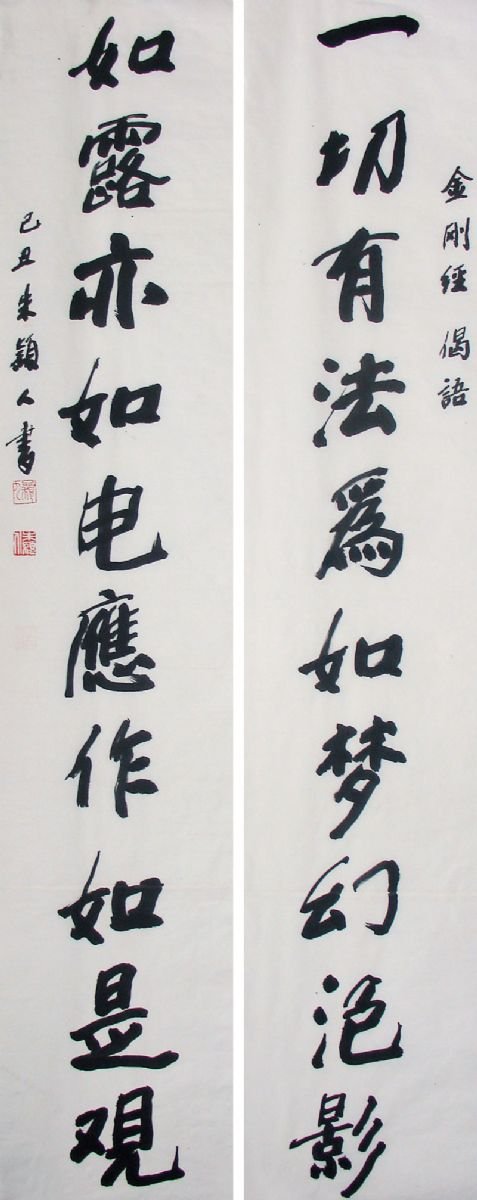 金剛經 偈語
一切有法爲如梦幻泡影
如露亦如电應作如是观
己丑朱穎人書